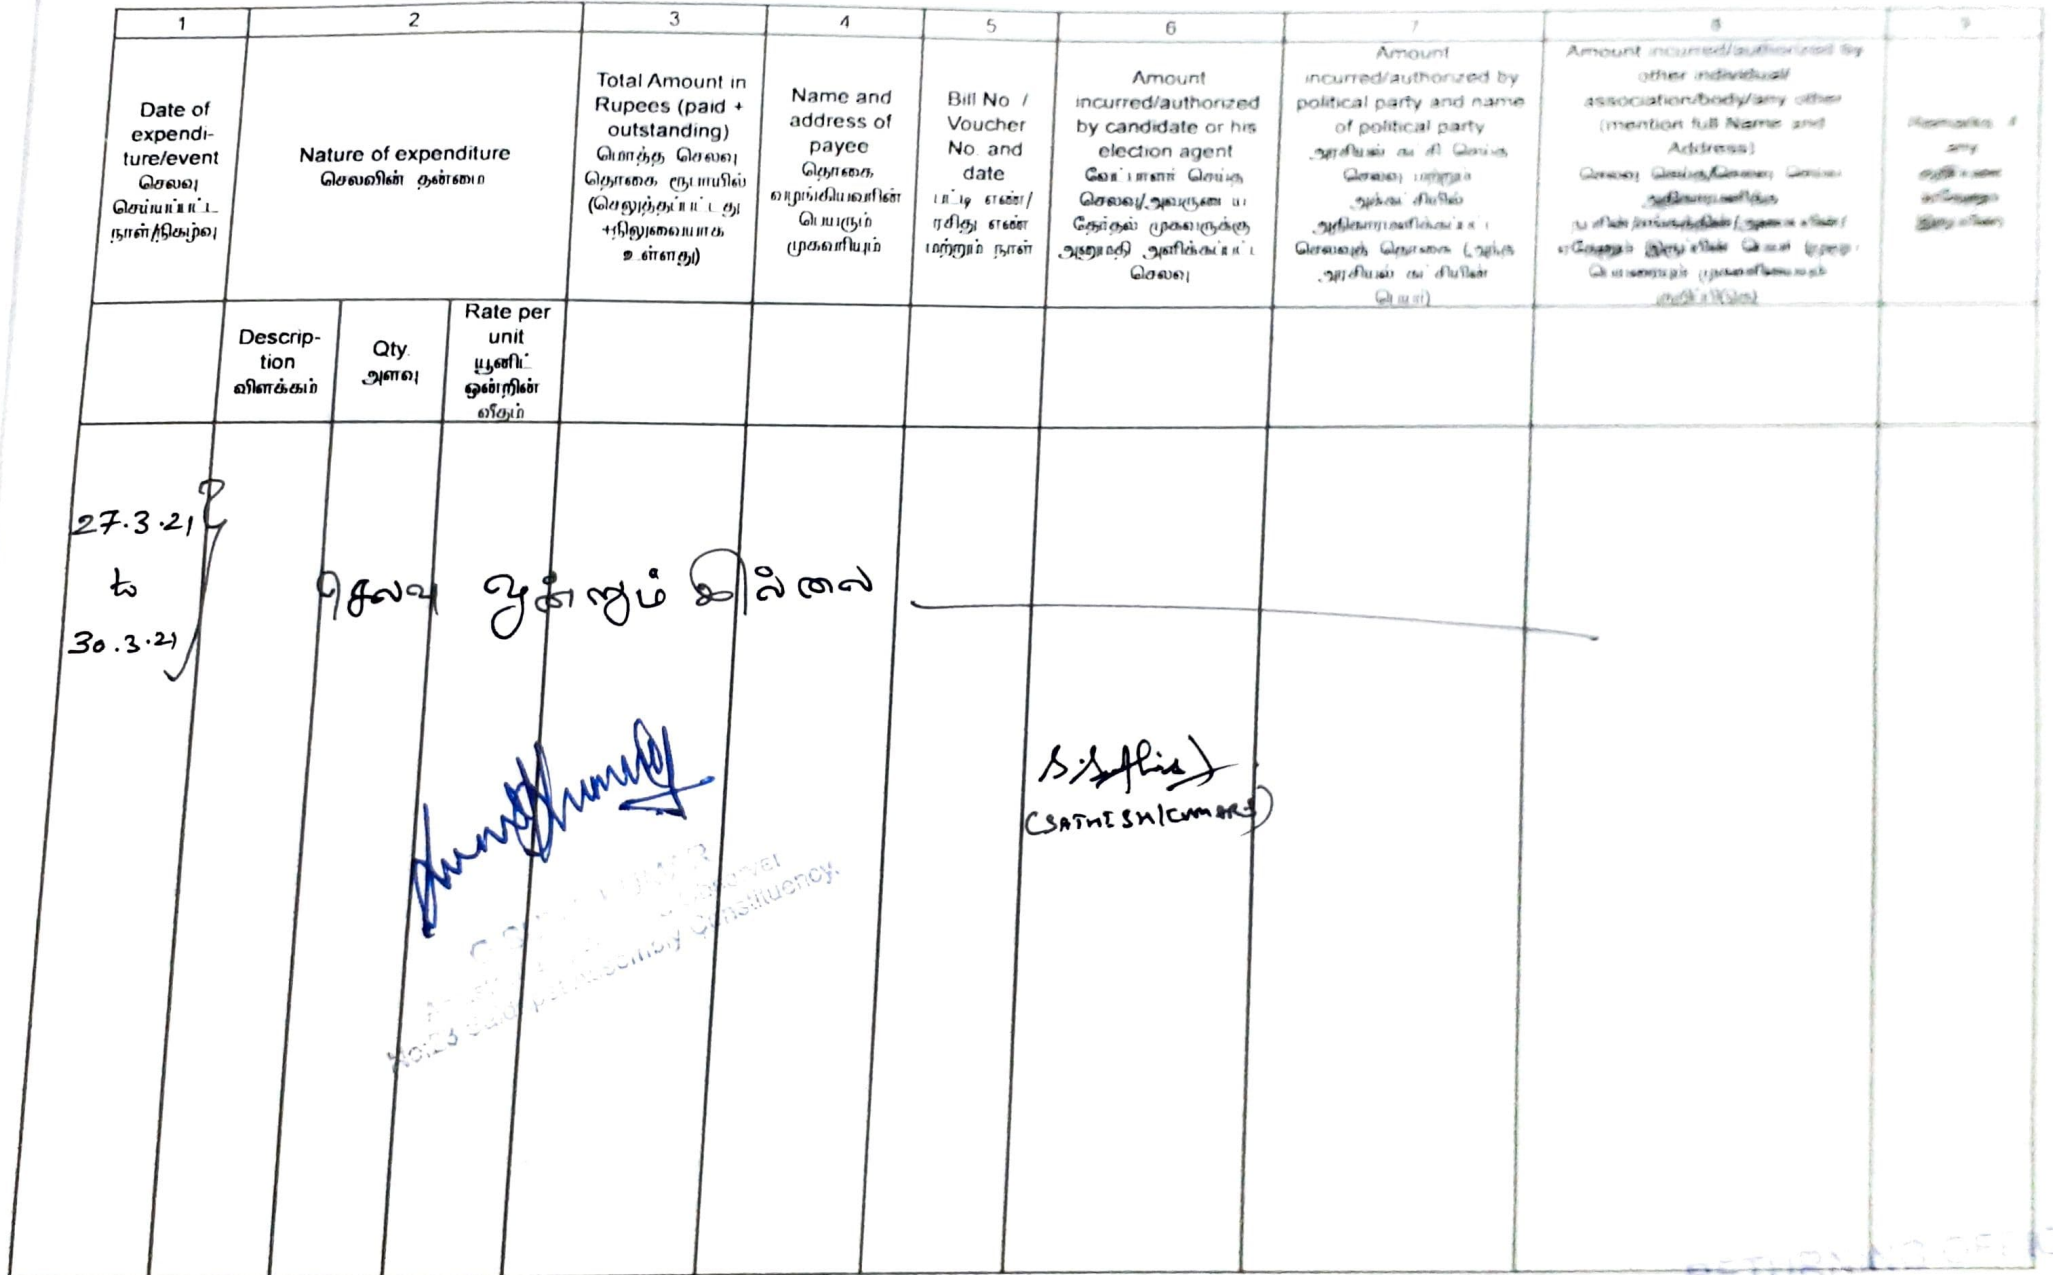 1 2 3 4 5 6 7 8 9
Date of
expendi-
ture/event
செலவு
செய்யப்பட்ட
நாள்/நிகழ்வு
Nature of expenditure
செலவின் தன்மை
Total Amount in
Rupees (paid +
outstanding)
மொத்த செலவு
தொகை ரூபாயில்
(செலுத்தப்பட்டது
+நிலுவையாக
உள்ளது)
Name and
address of
payee
தொகை
வழங்கியவரின்
பெயரும்
முகவரியும்
Bill No /
Voucher
No. and
date
பட்டி எண்/
ரசிது எண்
மற்றும் நாள்
Amount
incurred/authorized
by candidate or his
election agent
வேட்பாளர் செய்த
செலவு/அவருடைய
தேர்தல் முகவருக்கு
அனுமதி அளிக்கப்பட்ட
செலவு
Amount
incurred/authorized by
political party and name
of political party
அரசியல் கட்சி செய்த
செலவு மற்றும்
அக்கட்சியில்
அதிகாரமளிக்கப்பட்ட
செலவுத் தொகை (அந்த
அரசியல் கட்சியின்
பெயர்)
Amount incurred/authorized by
other individual/
association/body/any other
(mention full Name and
Address)
Remarks, if
any
Descrip-
tion
விளக்கம்
Qty.
அளவு
Rate per
unit
யூனிட்
ஒன்றின்
வீதம்
27.3.21
to
30.3.21
செலவு ஒன்றும் இல்லை
(SATHISHKUMAR.S)
Constituency.
No:23